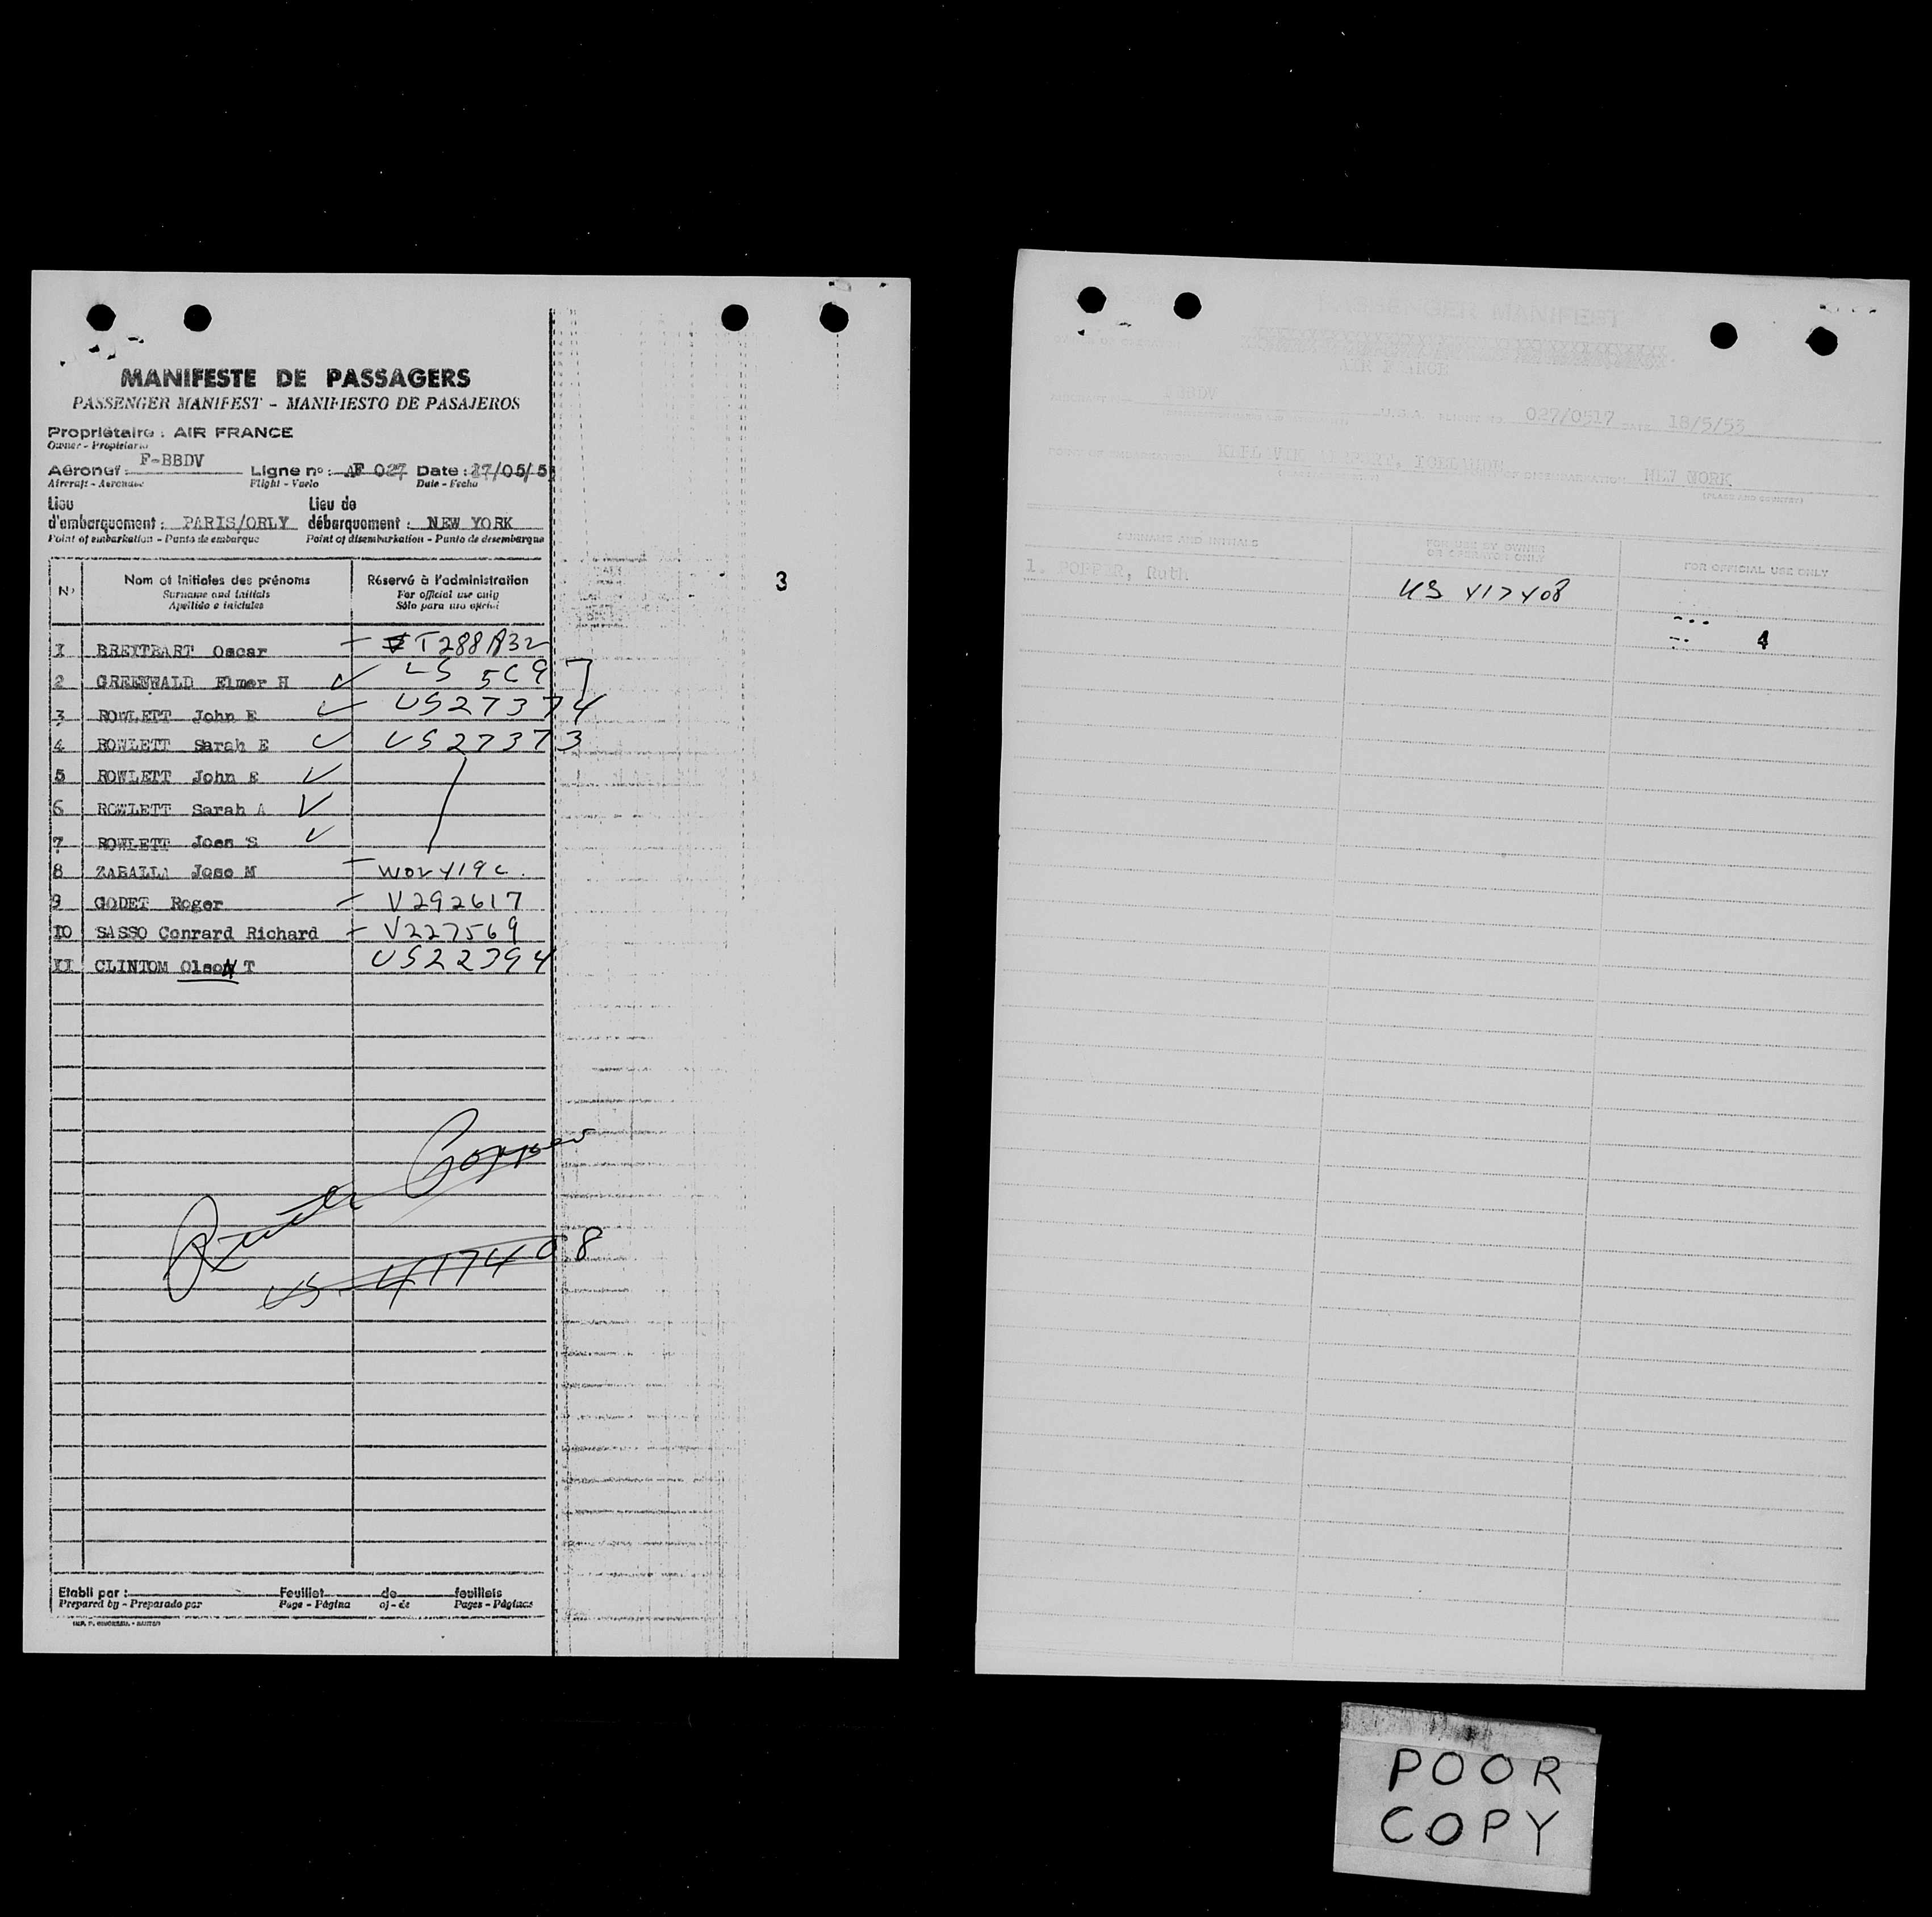 MANIFESTE DE PASSAGERS
PASSENGER MANIFEST - MANIFIESTO DE PASAJEROS
Propriétaire : AIR FRANCE
Owner - Propietario
Aéronef : F-BBDV Ligne nº : AF 027 Date : 17/05/5
Aircraft - Aeronave Flight - Vuelo Date - Fecha
Lieu d'embarquement : PARIS/ORLY Lieu de débarquement : NEW YORK
Point of embarkation - Punto de embarque Point of disembarkation - Punto de desembarque
Nº Nom et initiales des prénoms Réservé à l'administration
Surname and initials For official use only
Apellido e iniciales Sólo para uso oficial
3
1 BREITBART Oscar
2 GREENWALD Elmer H
3 ROWLETT John E US27374
4 ROWLETT Sarah E US27373
5 ROWLETT John E
6 ROWLETT Sarah A
7 ROWLETT Joen S
8 ZABALLA Jose M
9 GODET Roger V292617
10 SASSO Conrard Richard V227569
11 CLINTOM OlsoN T US22394
US 417408
Etabli par : Feuillet de feuillets
Prepared by - Preparado por Page - Página of - de Pages - Páginas
PASSENGER MANIFEST
AIR FRANCE
FBBDV U.S.A. FLIGHT NO. 027/0517 DATE 18/5/53
POINT OF EMBARKATION KEFLAVIK AIRPORT, ICELAND POINT OF DISEMBARKATION NEW YORK
(PLACE AND COUNTRY)
SURNAME AND INITIALS FOR USE BY OWNER OR OPERATOR ONLY FOR OFFICIAL USE ONLY
1. POPPER, Ruth US 417408
4
POOR
COPY